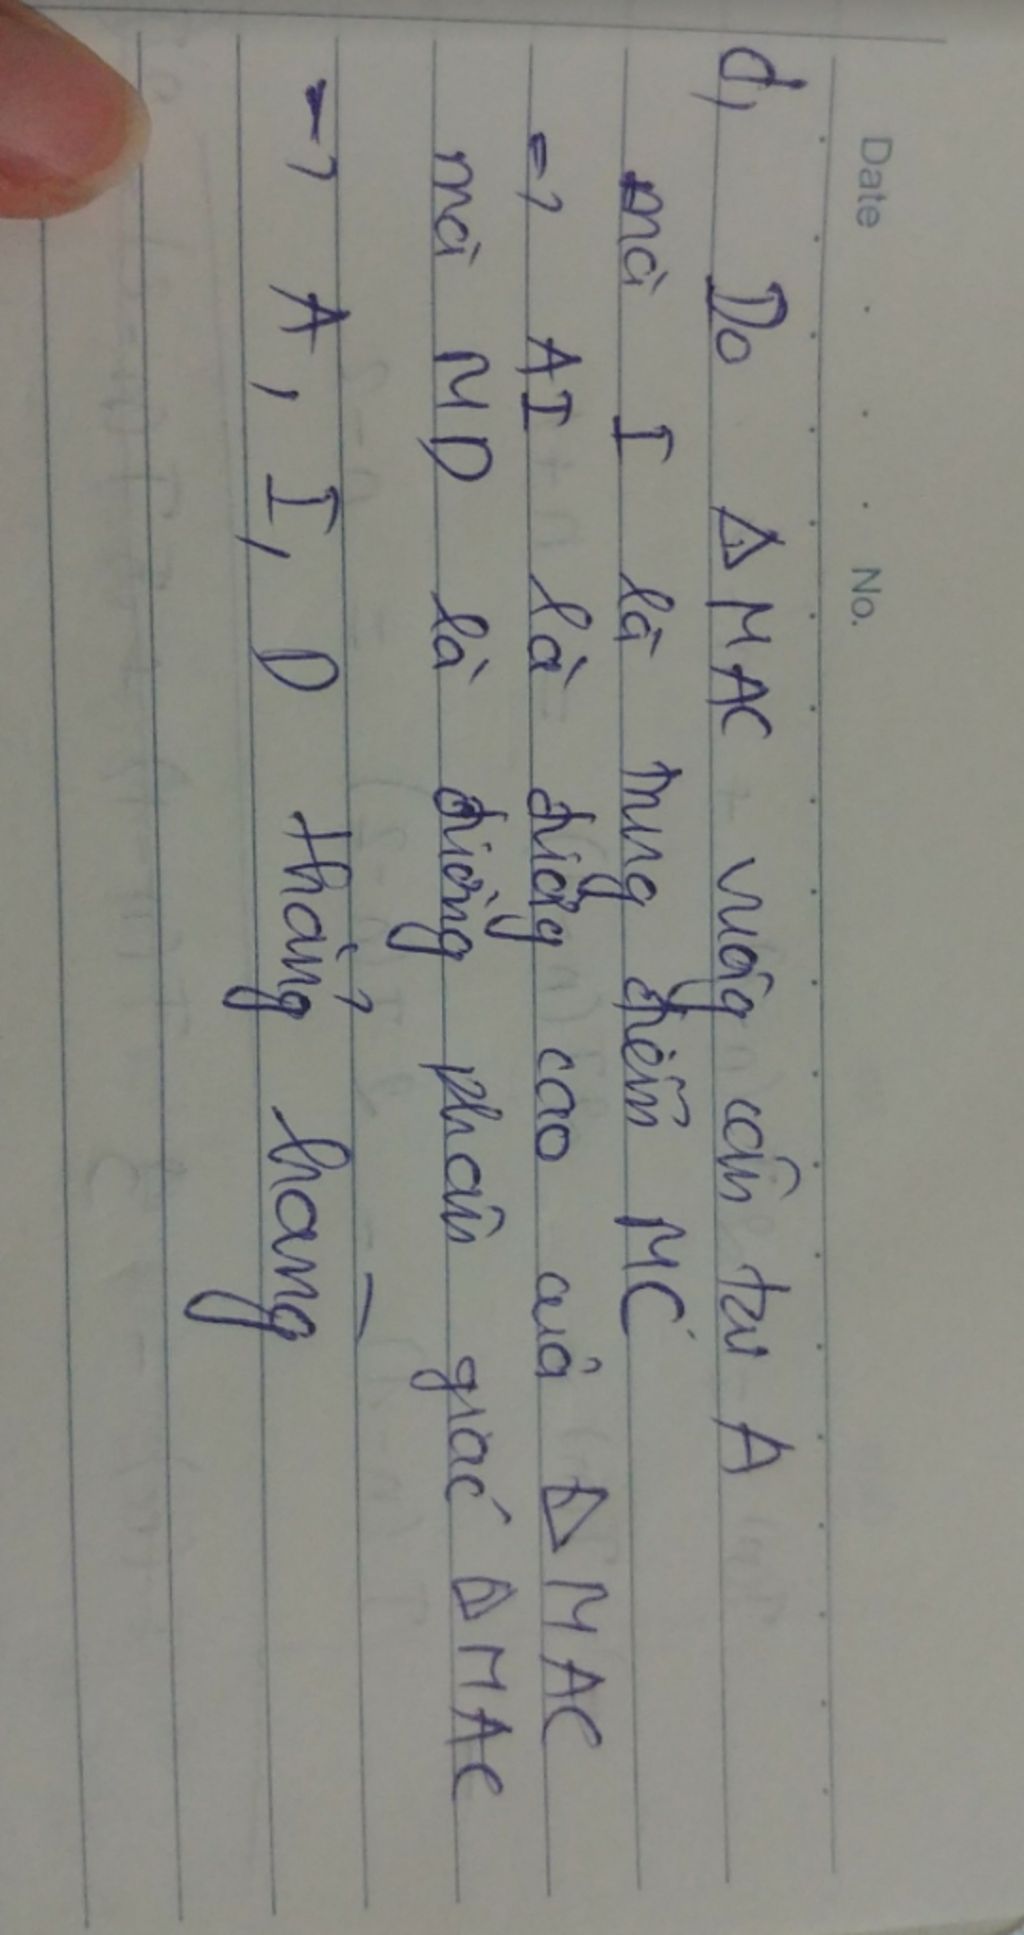 Date . . . No.
d, Do Δ MAC vuông cân tại A
mà I là trung điểm MC
=> AI là đường cao của Δ MAC
mà MD là đường phân giác Δ MAC
=> A, I, D thẳng hàng